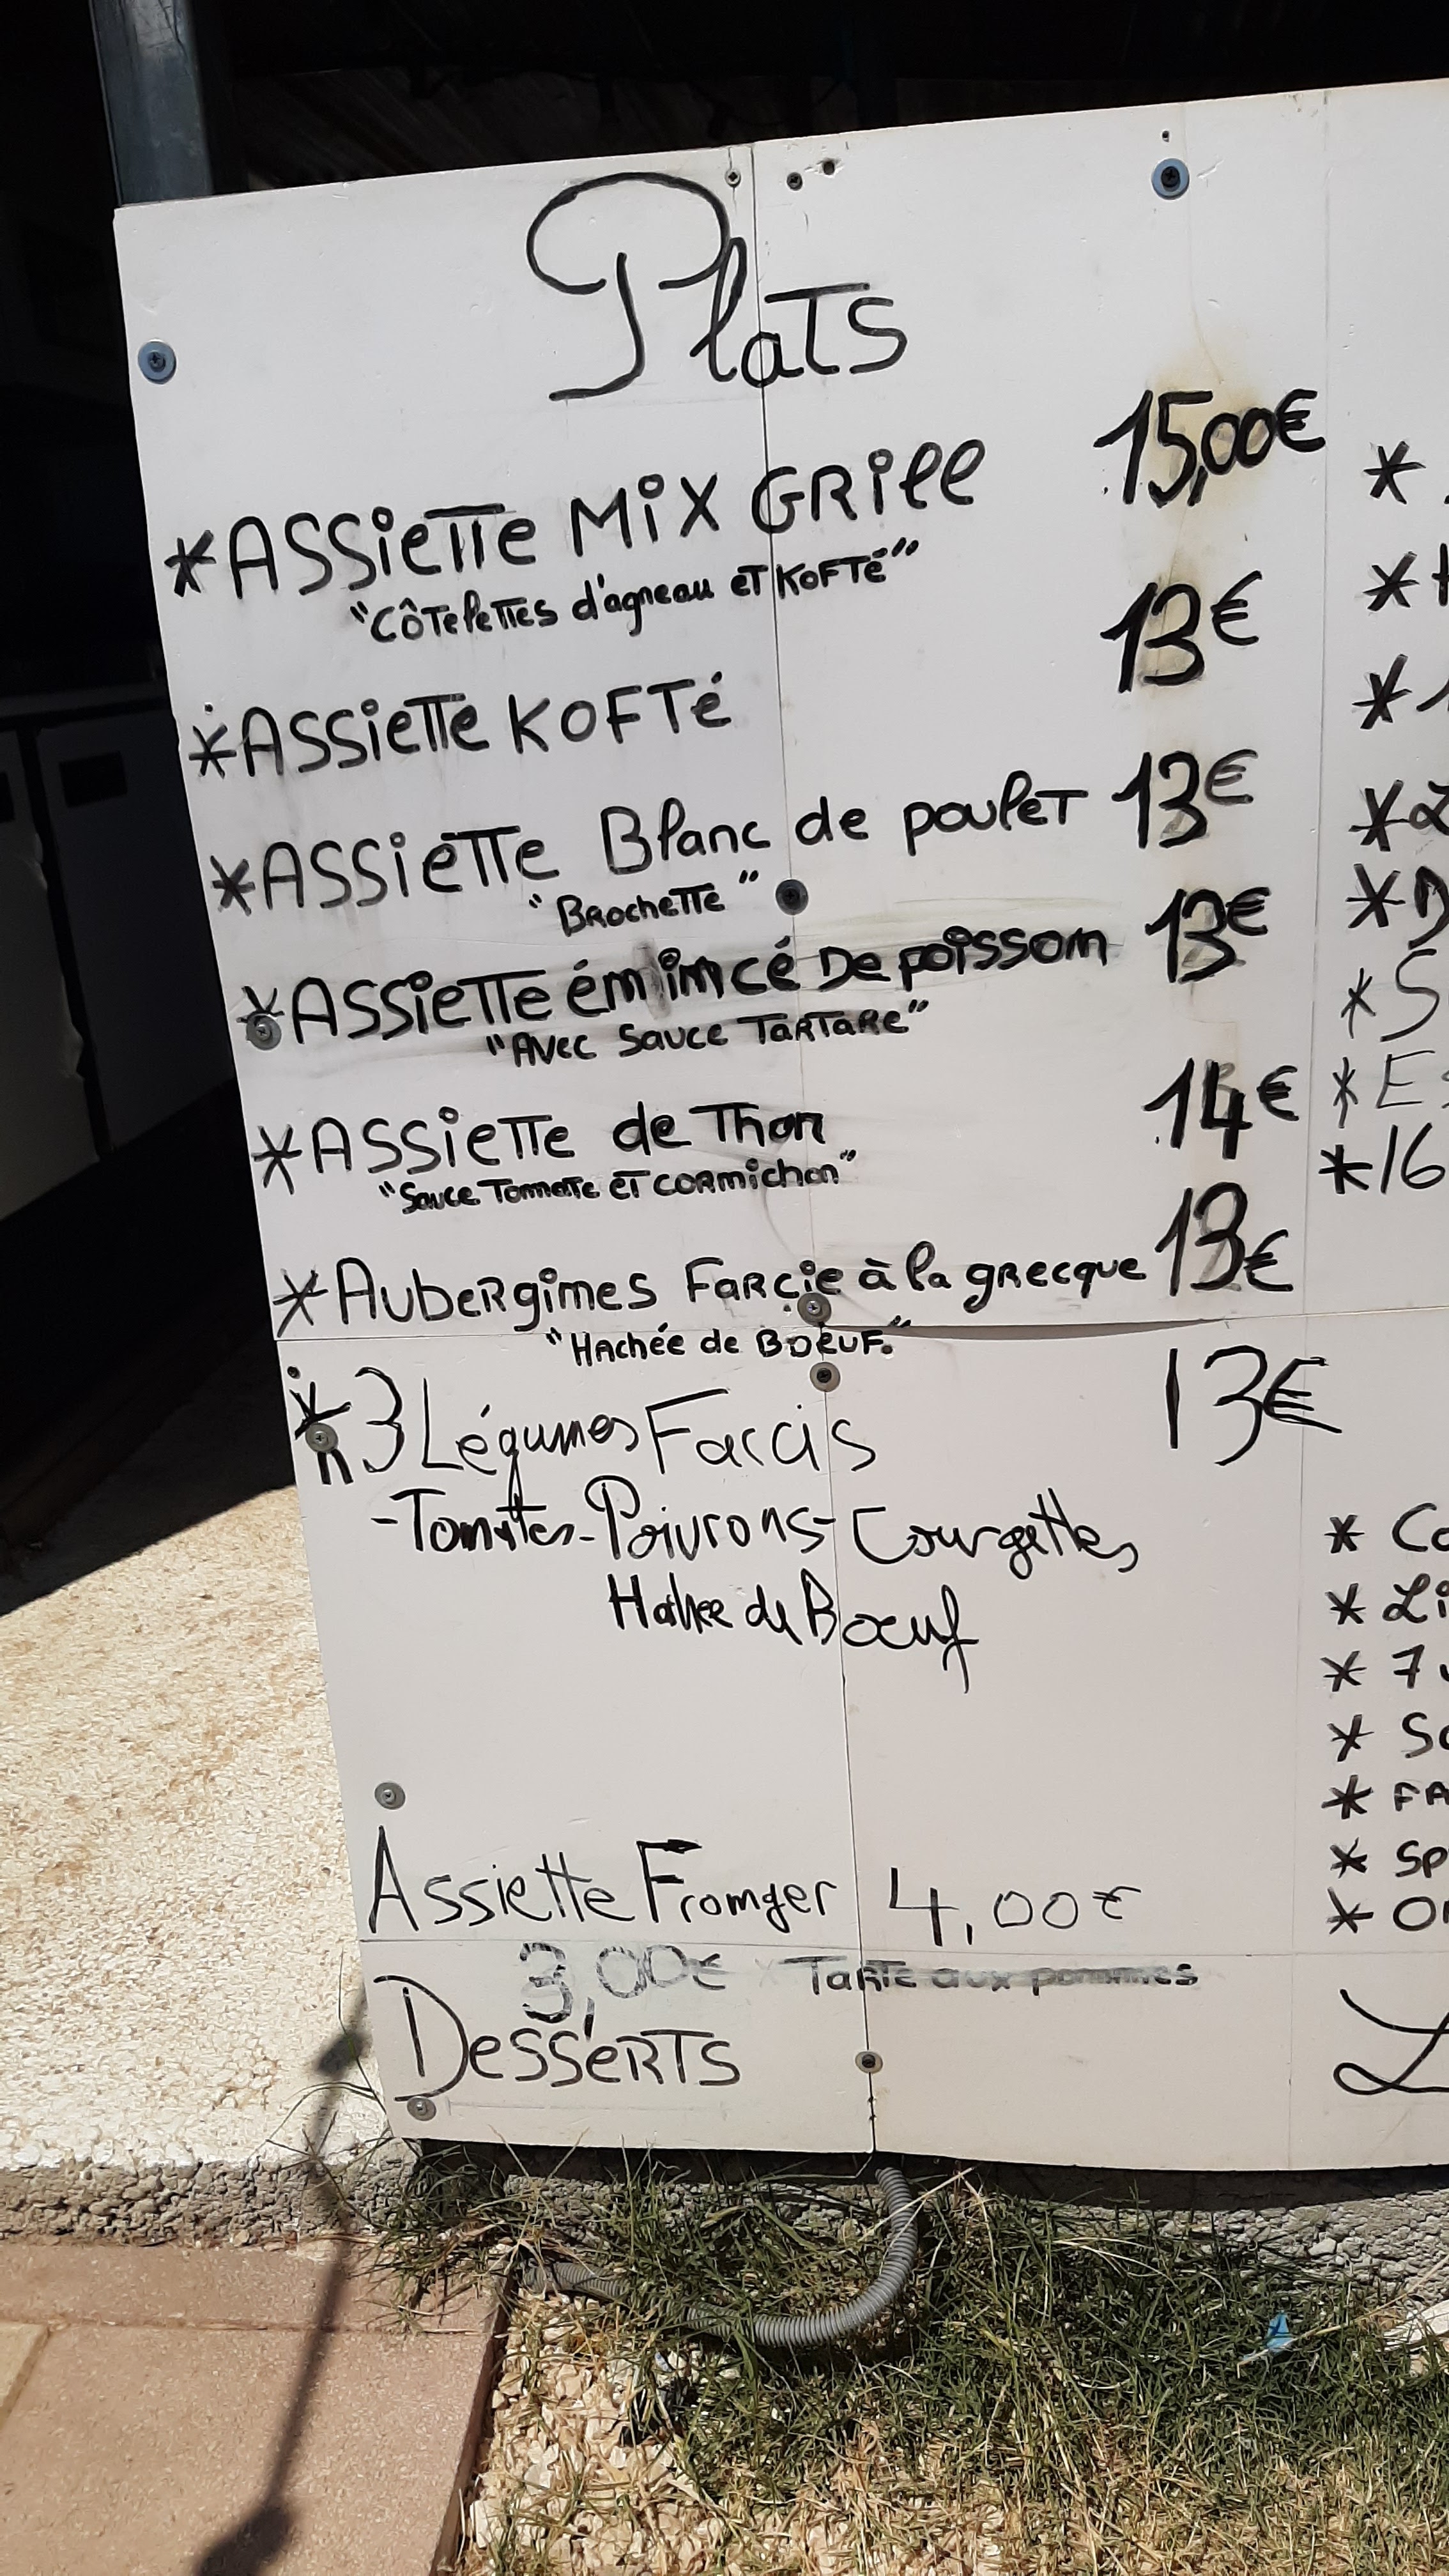 Plats
*ASSieTTe MiX GRill 15,00€
"CÔTeleTTes d'agneau eT KoFTé"
*ASSieTTe KoFTé 13€
*ASSieTTe Blanc de pouleT 13€
"BRocheTTe"
*ASSieTTe émimcé De poissom 13€
"AVec Sauce TaRTaRe"
*ASSieTTe de Thon 14€
"Sauce Tomate eT coRmichon"
*AubeRgimes FaRcie à la gRecque 13€
"Hachée de BOEUF."
*3 Légumes Farcis 13€
-Tomates-Poivrons-Courgettes
Hachee de Boeuf
Assiette Fromger 4,00€
3,00€ * TaRTe aux pommes
DesseRTS
*
*
*
*
*
*S
*Es
*16
* Co
* Li
* 7
* So
* FA
* Sp
* OR